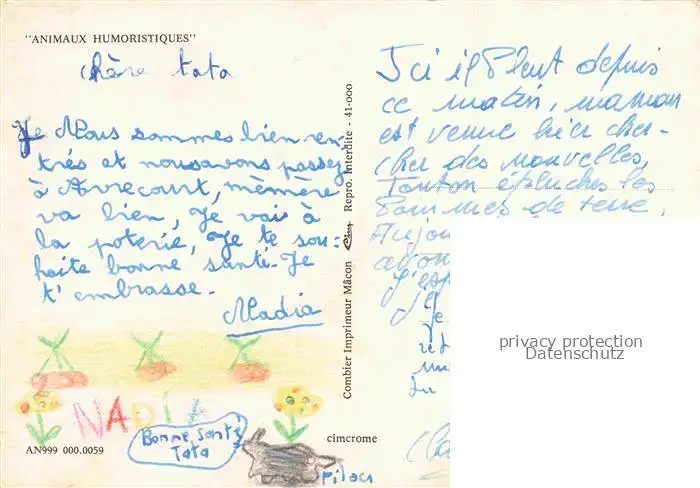 "ANIMAUX HUMORISTIQUES"
chère tata
Je Nous sommes bien ren-
trés et nous avons passez
à Avrecourt, mèmère
va bien, Je vais à
la poterie, Je te sou-
haite bonne santé. Je
t'embrasse.
Nadia
NADIA
Bonne Santé
Tata
pilou
AN999 000.0059
cimcrome
Combier Imprimeur Mâcon Repro. Interdite - 41-000
Ici il Pleut depuis
ce matin, maman
est venue hier cher-
cher des nouvelles,
Tonton épluches les
Pommes de terre,
privacy protection
Datenschutz